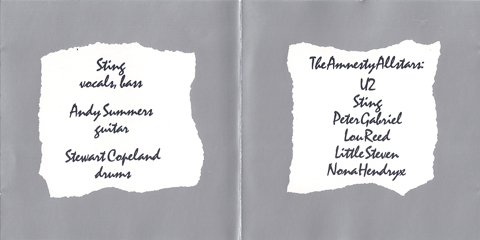 Sting
vocals, bass
Andy Summers
guitar
Stewart Copeland
drums
The Amnesty Allstars:
U2
Sting
Peter Gabriel
Lou Reed
Little Steven
Nona Hendryx